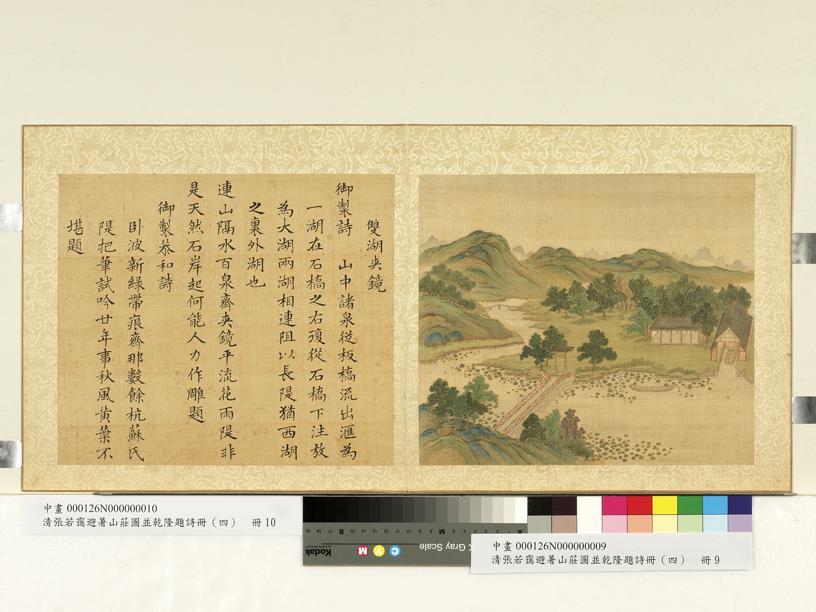 雙湖夾鏡
御製詩 山中諸泉從板橋流出滙為
一湖在石橋之右復從石橋下注放
為大湖兩湖相連阻以長隄猶西湖
之裏外湖也
連山隔水百泉齊夾鏡平流花雨隄非
是天然石岸起何能人力作雕題
御製恭和詩
卧波新綠帶痕齊那數餘杭蘇氏
隄把筆試吟廿年事秋風黃葉不
堪題
中畫 000126N000000010
清張若靄避暑山莊圖並乾隆題詩冊（四） 冊10
中畫 000126N000000009
清張若靄避暑山莊圖並乾隆題詩冊（四） 冊9
Kodak
Gray Scale
C
Y
M
A
M
B